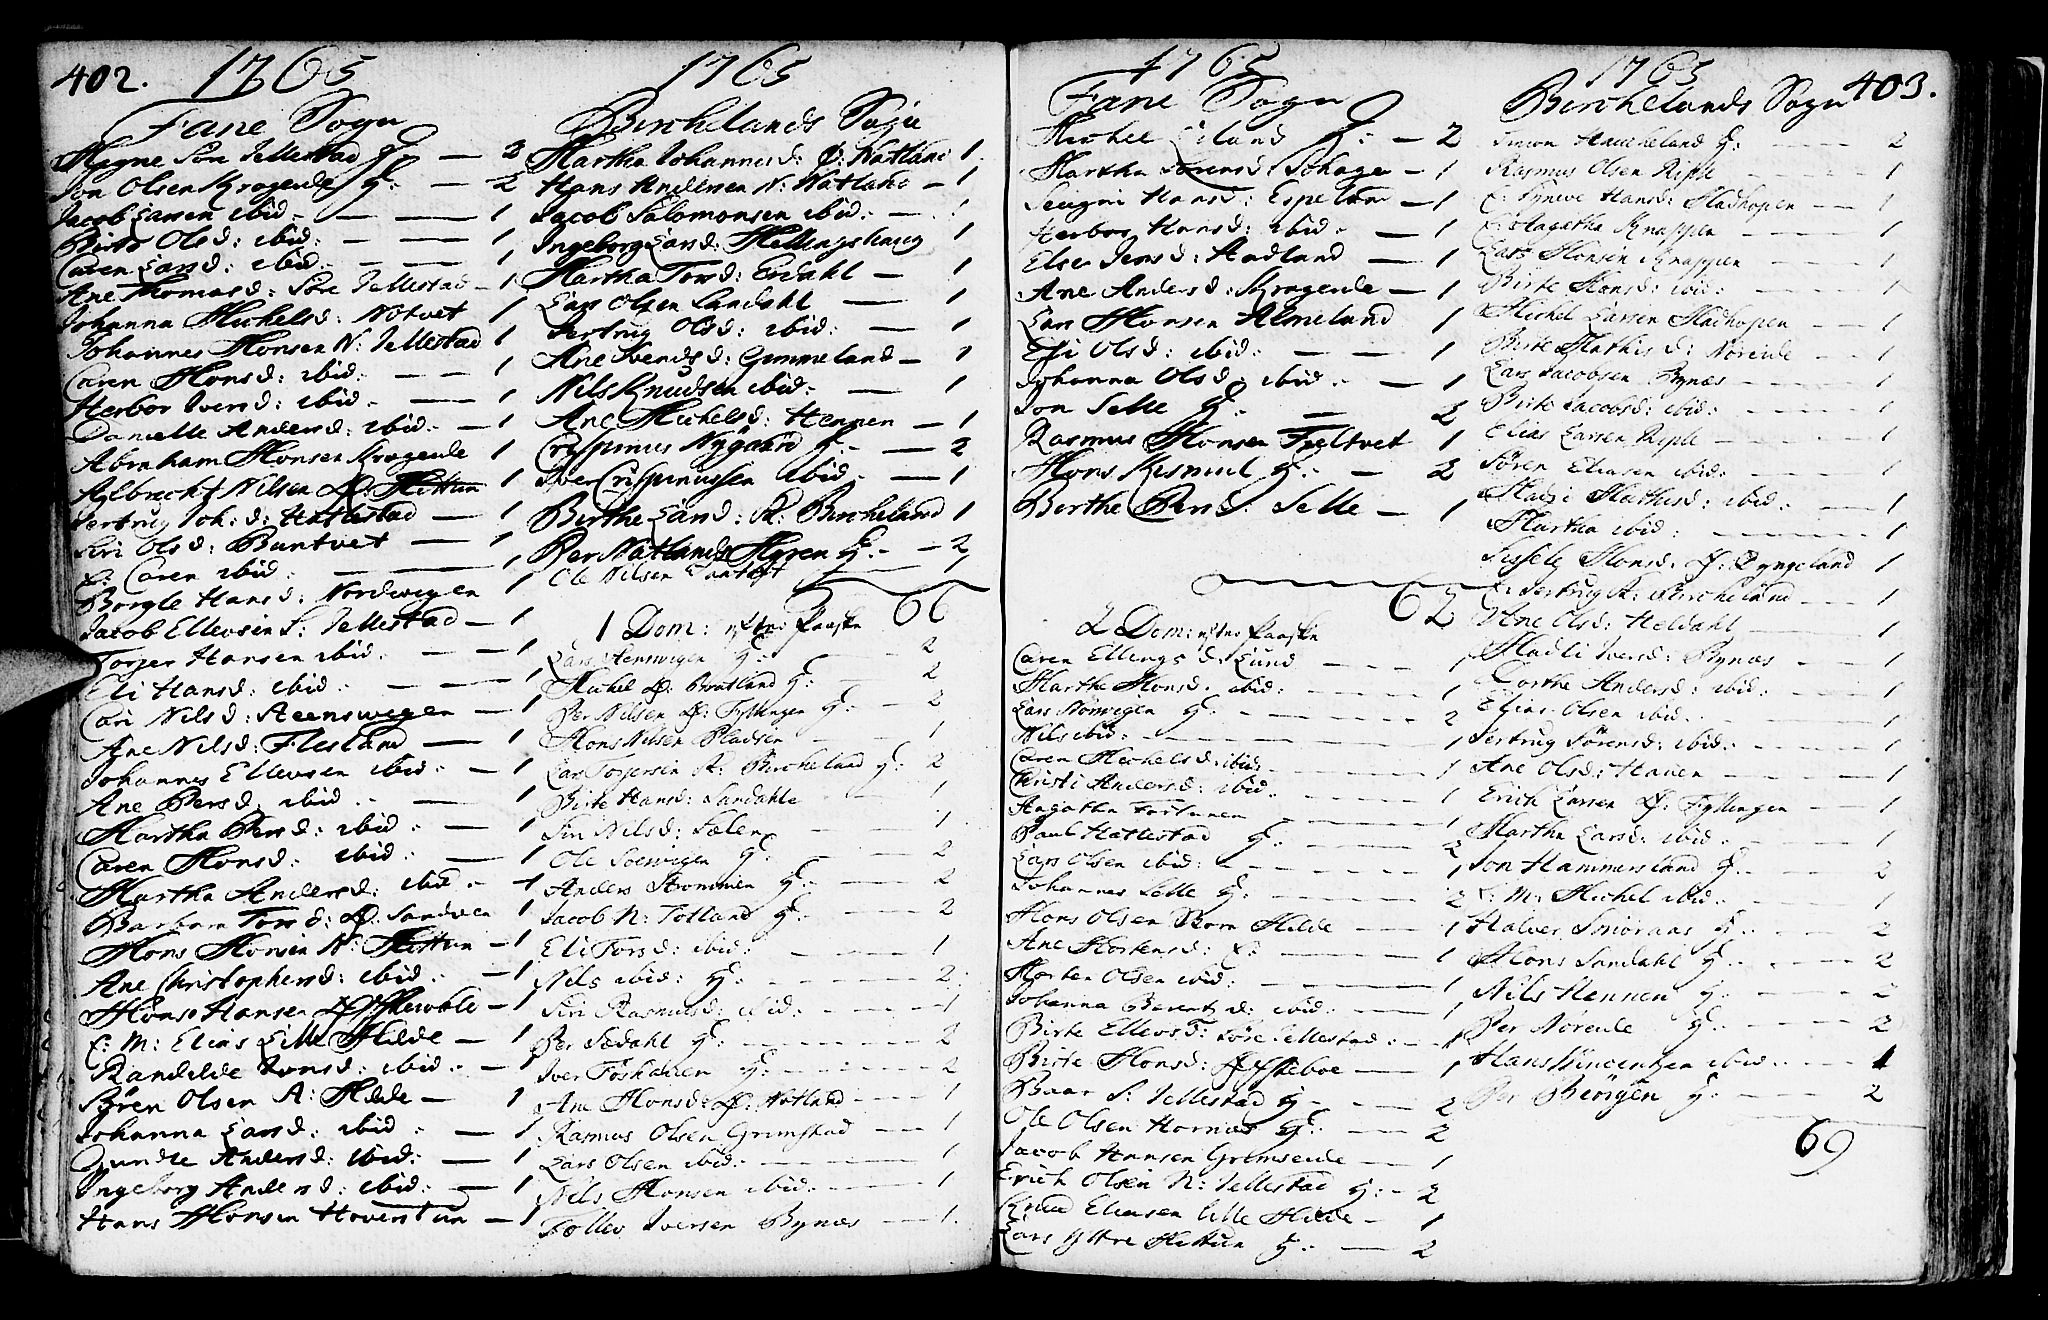 402. 1765
Fane Sogn
Magne Søre Jellestad H: — 2
Jon Olsen Kragende H: — 2
Jacob Larsen ibid: — 1
Birte Olsd: ibid: — 1
Caren Larsd: ibid: — 1
Ane Thomasd: Søre Jellestad — 1
Johanna Michelsd: Nøtvet 1
Johannes Monsen N: Jellestad 1
Caren Monsd: ibid: — 1
Herbor Iversd: ibid: — 1
Danielle Andersd: ibid: — 1
Abraham Monsen Kragende 1
Aslbrecht Nilsen Hittun 1
Giertrug Joh: d: Hatlestad — 1
Siri Olsd: Buntvet — 1
Caren ibid: — 1
Borgle Hansd: Nordvegen 1
Jacob Ellevsen S: Jellestad — 1
Torger Hansen ibid: — 1
Eli Hansd: ibid: — 1
Cari Nilsd: Steenswegen — 1
Ane Nilsd: Flesland — 1
Johannes Ellevsen ibid: — 1
Ane Persd: ibid: — 1
Martha Persd: ibid: — 1
Caren Monsd: ibid: — 1
Martha Andersd: ibid: — 1
Barbara Torsd: Ø: Sandven 1
Mons Monsen N: Hittun — 1
Ane Christophersd: ibid: — 1
Hans Hansen — 1
E: M: Elias Lille Hilde — 1
Randilde Ionsd: ibid: — 1
Søren Olsen A: Hilde — 1
Johanna Larsd: ibid: — 1
Gundle Andersd: ibid: — 1
Ingeborg Andersd: ibid: — 1
Hans Monsen Hoventun — 1
1765
Birchelands Sogn
Martha Johannesd: Ø: Natland 1
Hans Andersen N: Natland — 1
Jacob Salomonsen ibid: — 1
Ingeborg Larsd: Hellingshaug 1
Martha Torsd: Erdahl — 1
Lars Olsen Sandahl — 1
Giertrug Olsd: ibid: — 1
Ane Svendsd: Gummeland — 1
Nils Knudsen ibid: — 1
Ane Michelsd: Hennen — 1
Crispinus Nygaard H: — 2
Iver Crispinussen ibid: — 1
Birthe Larsd: K: Bircheland 1
Per Natlands Myren H: — 2
Ole Nilsen — 1
66
1 Dom: efter Paaske
Lars Steenswegen H: — 2
Michel Ø: Bratland H: — 2
Per Nilsen Ø: Fyllingen H: — 2
Mons Nilsen Pladsen — 1
Lars Torgersen K: Bircheland H: 2
Birte Hansd: Sandahle — 1
Siri Nilsd: Sælen — 1
Ole Soerwigen H: — 2
Anders Strømmen H: — 2
Jacob N: Totland H: — 2
Eli Torsd: ibid: — 1
Nils ibid: H: — 2
Siri Rasmusd: ibid: — 1
Per Sædahl H: — 2
Iver Foshauen H: — 2
Ane Monsd: Ø: Natland — 1
Rasmus Olsen Grimstad — 1
Lars Olsen ibid: — 1
Nils Monsen ibid: — 1
Follev Iversen Bynæs — 1
1765
Fane Sogn
Michel Eiland H: — 2
Martha Sørensd: Schage — 1
Seugni Hansd: Espeland — 1
Herbor Hansd: ibid: — 1
Else Jensd: Aadland — 1
Ane Andersd: Kragende — 1
Lars Monsen Almeland 1
Eli Olsd: ibid: — 1
Johanna Olsd: ibid: — 1
Jon Selle H: — 2
Rasmus Monsen Tveltvet 1
Mons Kismul H: — 2
Berthe Persd: Selle — 1
62
2 Dom: efter Paaske
Caren Ellingsd: Lund — 1
Marthe Monsd: ibid: — 1
Lars Nørwegen H: — 2
Nils ibid: — 1
Caren Michelsd: ibid: — 1
Christi Andersd: ibid: — 1
Aagatha Fortunen — 1
Paul Hatlestad H: — 2
Lars Olsen ibid: — 1
Johannes Selle H: — 2
Mons Olsen Hilde — 1
Ane Mortensd: — 1
Morten Olsen ibid: — 1
Johanna Berentzd: ibid: — 1
Birte Ellevsd: Søre Jellestad: — 1
Birte Monsd: — 1
Baar S: Jellestad H: — 2
Ole Olsen Hornæs H: — 2
Jacob Hansen Grimseide — 1
Erich Olsen N: Jellestad H: — 2
Knud Eliasen Lille Hilde — 1
Lars Yttre Hittun H: — 2
1765 403.
Birchelands Sogn
Simon Haucheland H: — 2
Rasmus Olsen Riple — 1
E: Synewe Hansd: Madhopen — 1
E: Aagatha Knappen — 1
Lars Monsen Knappen — 1
Birte Monsd: ibid: — 1
Michel Larsen Madhopen — 1
Birte Mathisd: Nøreide — 1
Lars Jacobsen Bynæs — 1
Birte Jacobsd: ibid: — 1
Elias Larsen Riple — 1
Søren Eliasen ibid: — 1
Madzi Mathisd: ibid: — 1
Martha ibid: — 1
Sissele Monsd: Ø: Tyngeland 1
E: Giertrug K: Bircheland — 1
Ane Olsd: Heldahl — 1
Madli Iversd: Bynæs — 1
Dorthe Andersd: ibid: — 1
Elias Olsen ibid: — 1
Giertrug Sørensd: ibid: — 1
Ane Olsd: Hauen — 1
Erich Larsen Ø: Fyllingen — 1
Martha Larsd: ibid: — 1
Jon Hammersland H: — 2
E: M: Michel ibid: — 1
Halver Smøraas H: — 2
Mons Sandahl H: — 2
Nils Hennen H: — 2
Per Nøreide H: — 2
Hans Vincentzen ibid: — 1
Per Børgen H: — 2
69